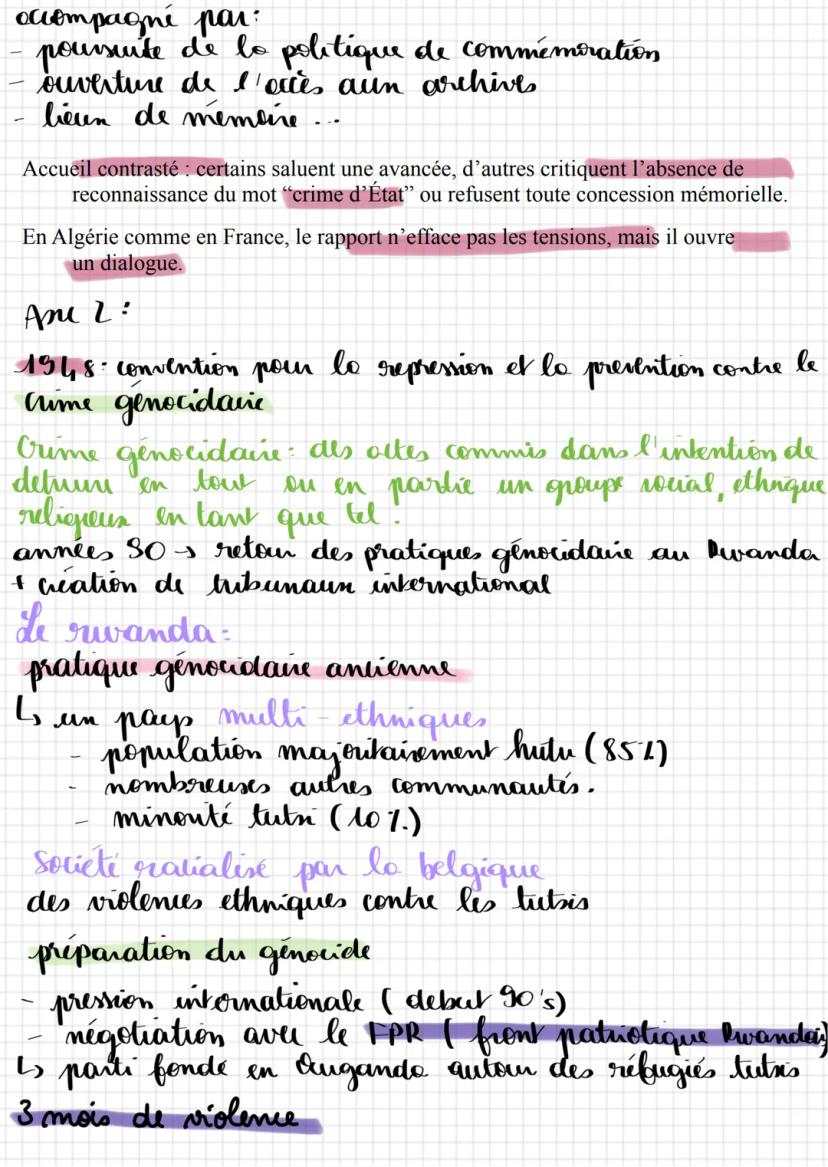 accompagné par:
- poursuite de la politique de commémoration
- ouverture de l'accès aux archives
- lieux de mémoire ...
Accueil contrasté : certains saluent une avancée, d’autres critiquent l’absence de
reconnaissance du mot “crime d’État” ou refusent toute concession mémorielle.
En Algérie comme en France, le rapport n’efface pas les tensions, mais il ouvre
un dialogue.
Axe 2 :
1948 : convention pour la repression et la prevention contre le
crime génocidaire
Crime génocidaire : des actes commis dans l'intention de
detruire en tout ou en partie un groupe social, ethnique
religieux en tant que tel.
années 90 → retour des pratiques génocidaire au Rwanda
+ création de tribunaux international
Le rwanda :
pratique génocidaire ancienne
↳ un pays multi-ethniques
- population majoritairement hutu (85%)
- nombreuses autres communautés.
- minorité tutsi (10%)
Société racialisé par la belgique
des violences ethniques contre les tutsis
préparation du génocide
- pression internationale ( debut 90's)
- négotiation avec le FPR ( front patriotique Rwandais)
↳ parti fondé en Ouganda autour des réfugiés tutsis
3 mois de violence